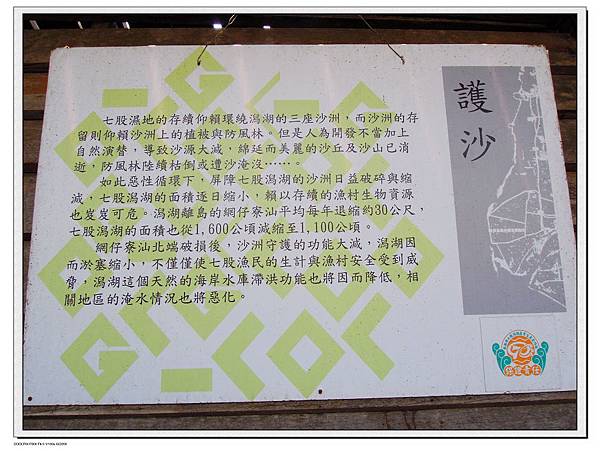 護沙
七股濕地的存續仰賴環繞潟湖的三座沙洲，而沙洲的存
留則仰賴沙洲上的植被與防風林。但是人為開發不當加上
自然演替，導致沙源大減，綿延而美麗的沙丘及沙山已消
逝，防風林陸續枯倒或遭沙淹沒……。
如此惡性循環下，屏障七股潟湖的沙洲日益破碎與縮
減，七股潟湖的面積逐日縮小，賴以存續的漁村生物資源
也岌岌可危。潟湖離島的網仔寮汕平均每年退縮約30公尺，
七股潟湖的面積也從1,600公頃減縮至1,100公頃。
網仔寮汕北端破損後，沙洲守護的功能大減，潟湖因
而淤塞縮小，不僅僅使七股漁民的生計與漁村安全受到威
脅，潟湖這個天然的海岸水庫滯洪功能也將因而降低，相
關地區的淹水情況也將惡化。